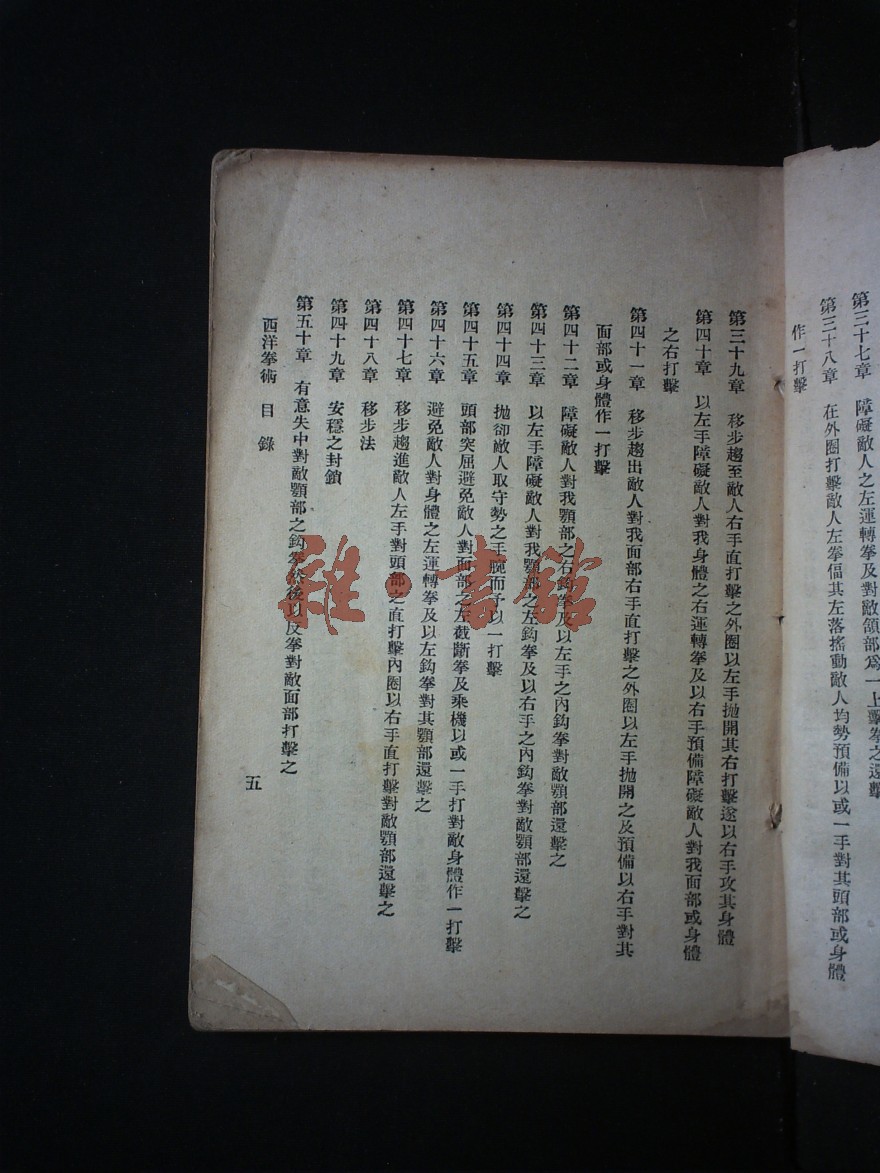 第三十七章　障礙敵人之左運轉拳及對敵頷部爲一上擊拳之還擊
第三十八章　在外圈打擊敵人左拳偪其左落搖動敵人均勢預備以或一手對其頭部或身體
作一打擊
第三十九章　移步趨至敵人右手直打擊之外圈以左手拋開其右打擊遂以右手攻其身體
第四十章　以左手障礙敵人對我身體之右運轉拳及以右手預備障礙敵人對我面部或身體
之右打擊
第四十一章　移步趨出敵人對我面部右手直打擊之外圈以左手拋開之及預備以右手對其
面部或身體作一打擊
第四十二章　障礙敵人對我顎部之右鈎拳及以左手之內鈎拳對敵顎部還擊之
第四十三章　以左手障礙敵人對我顎部之左鈎拳及以右手之內鈎拳對敵顎部還擊之
第四十四章　拋卻敵人取守勢之手腕而予以一打擊
第四十五章　頭部突屈避免敵人對面部之左截斷拳及乘機以或一手打對敵身體作一打擊
第四十六章　避免敵人對身體之左運轉拳及以左鈎拳對其顎部還擊之
第四十七章　移步趨進敵人左手對頭部之直打擊內圈以右手直打擊對敵顎部還擊之
第四十八章　移步法
第四十九章　安穩之封鎖
第五十章　有意失中對敵顎部之鈎拳然後以反拳對敵面部打擊之
西洋拳術　目錄
五
雜·書館